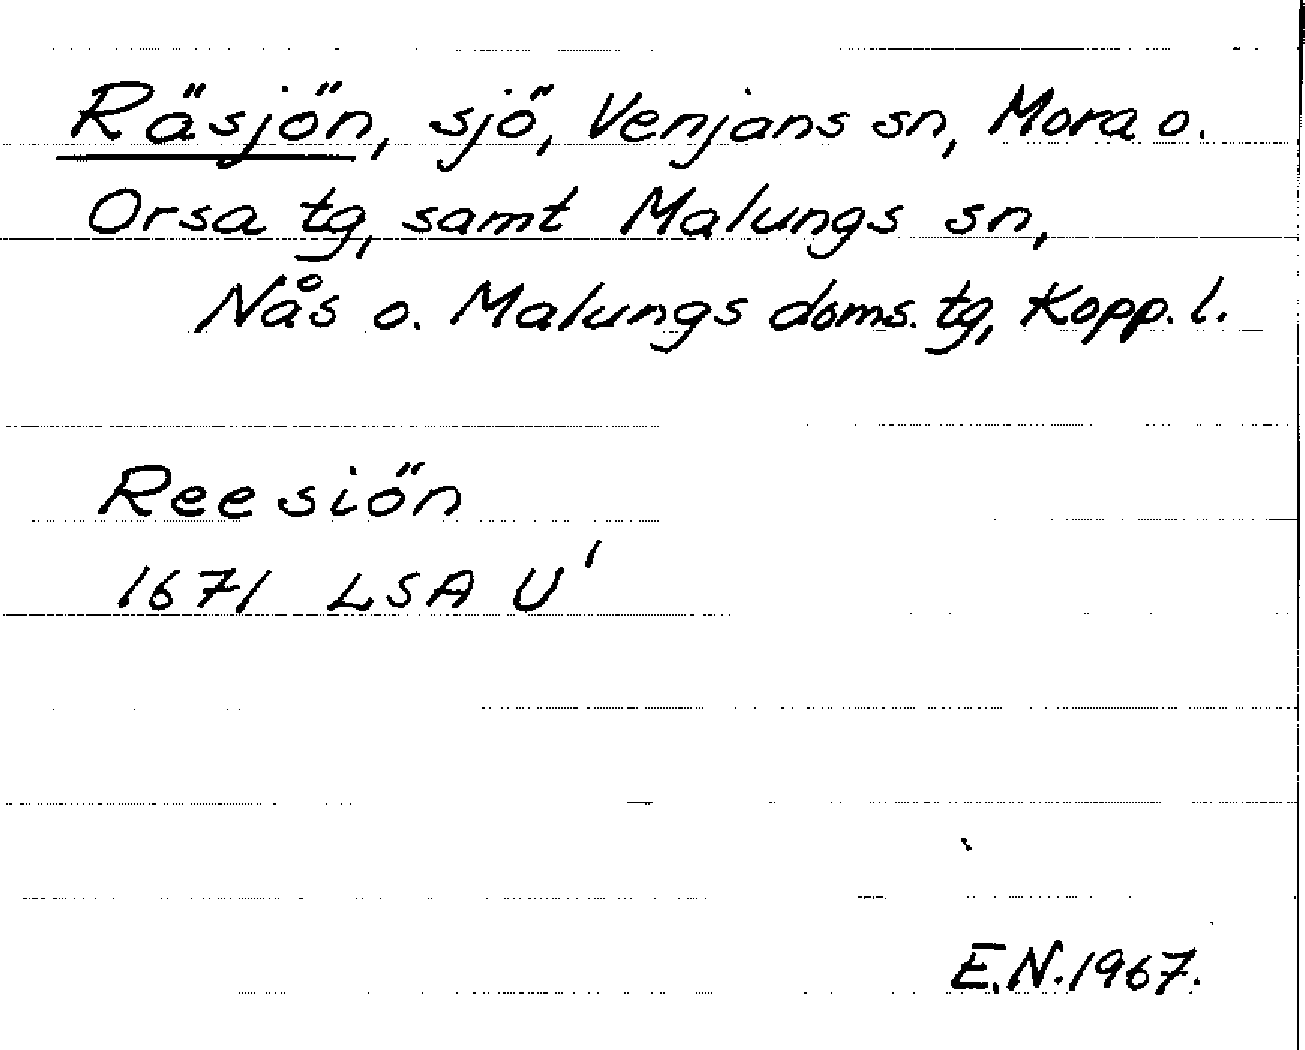 Räsjön, sjö, Venjans sn, Mora o.
Orsa tg, samt Malungs sn,
Nås o. Malungs doms. tg, Kopp. l.
Ree siön
1671 LSA U¹
E.N. 1967.